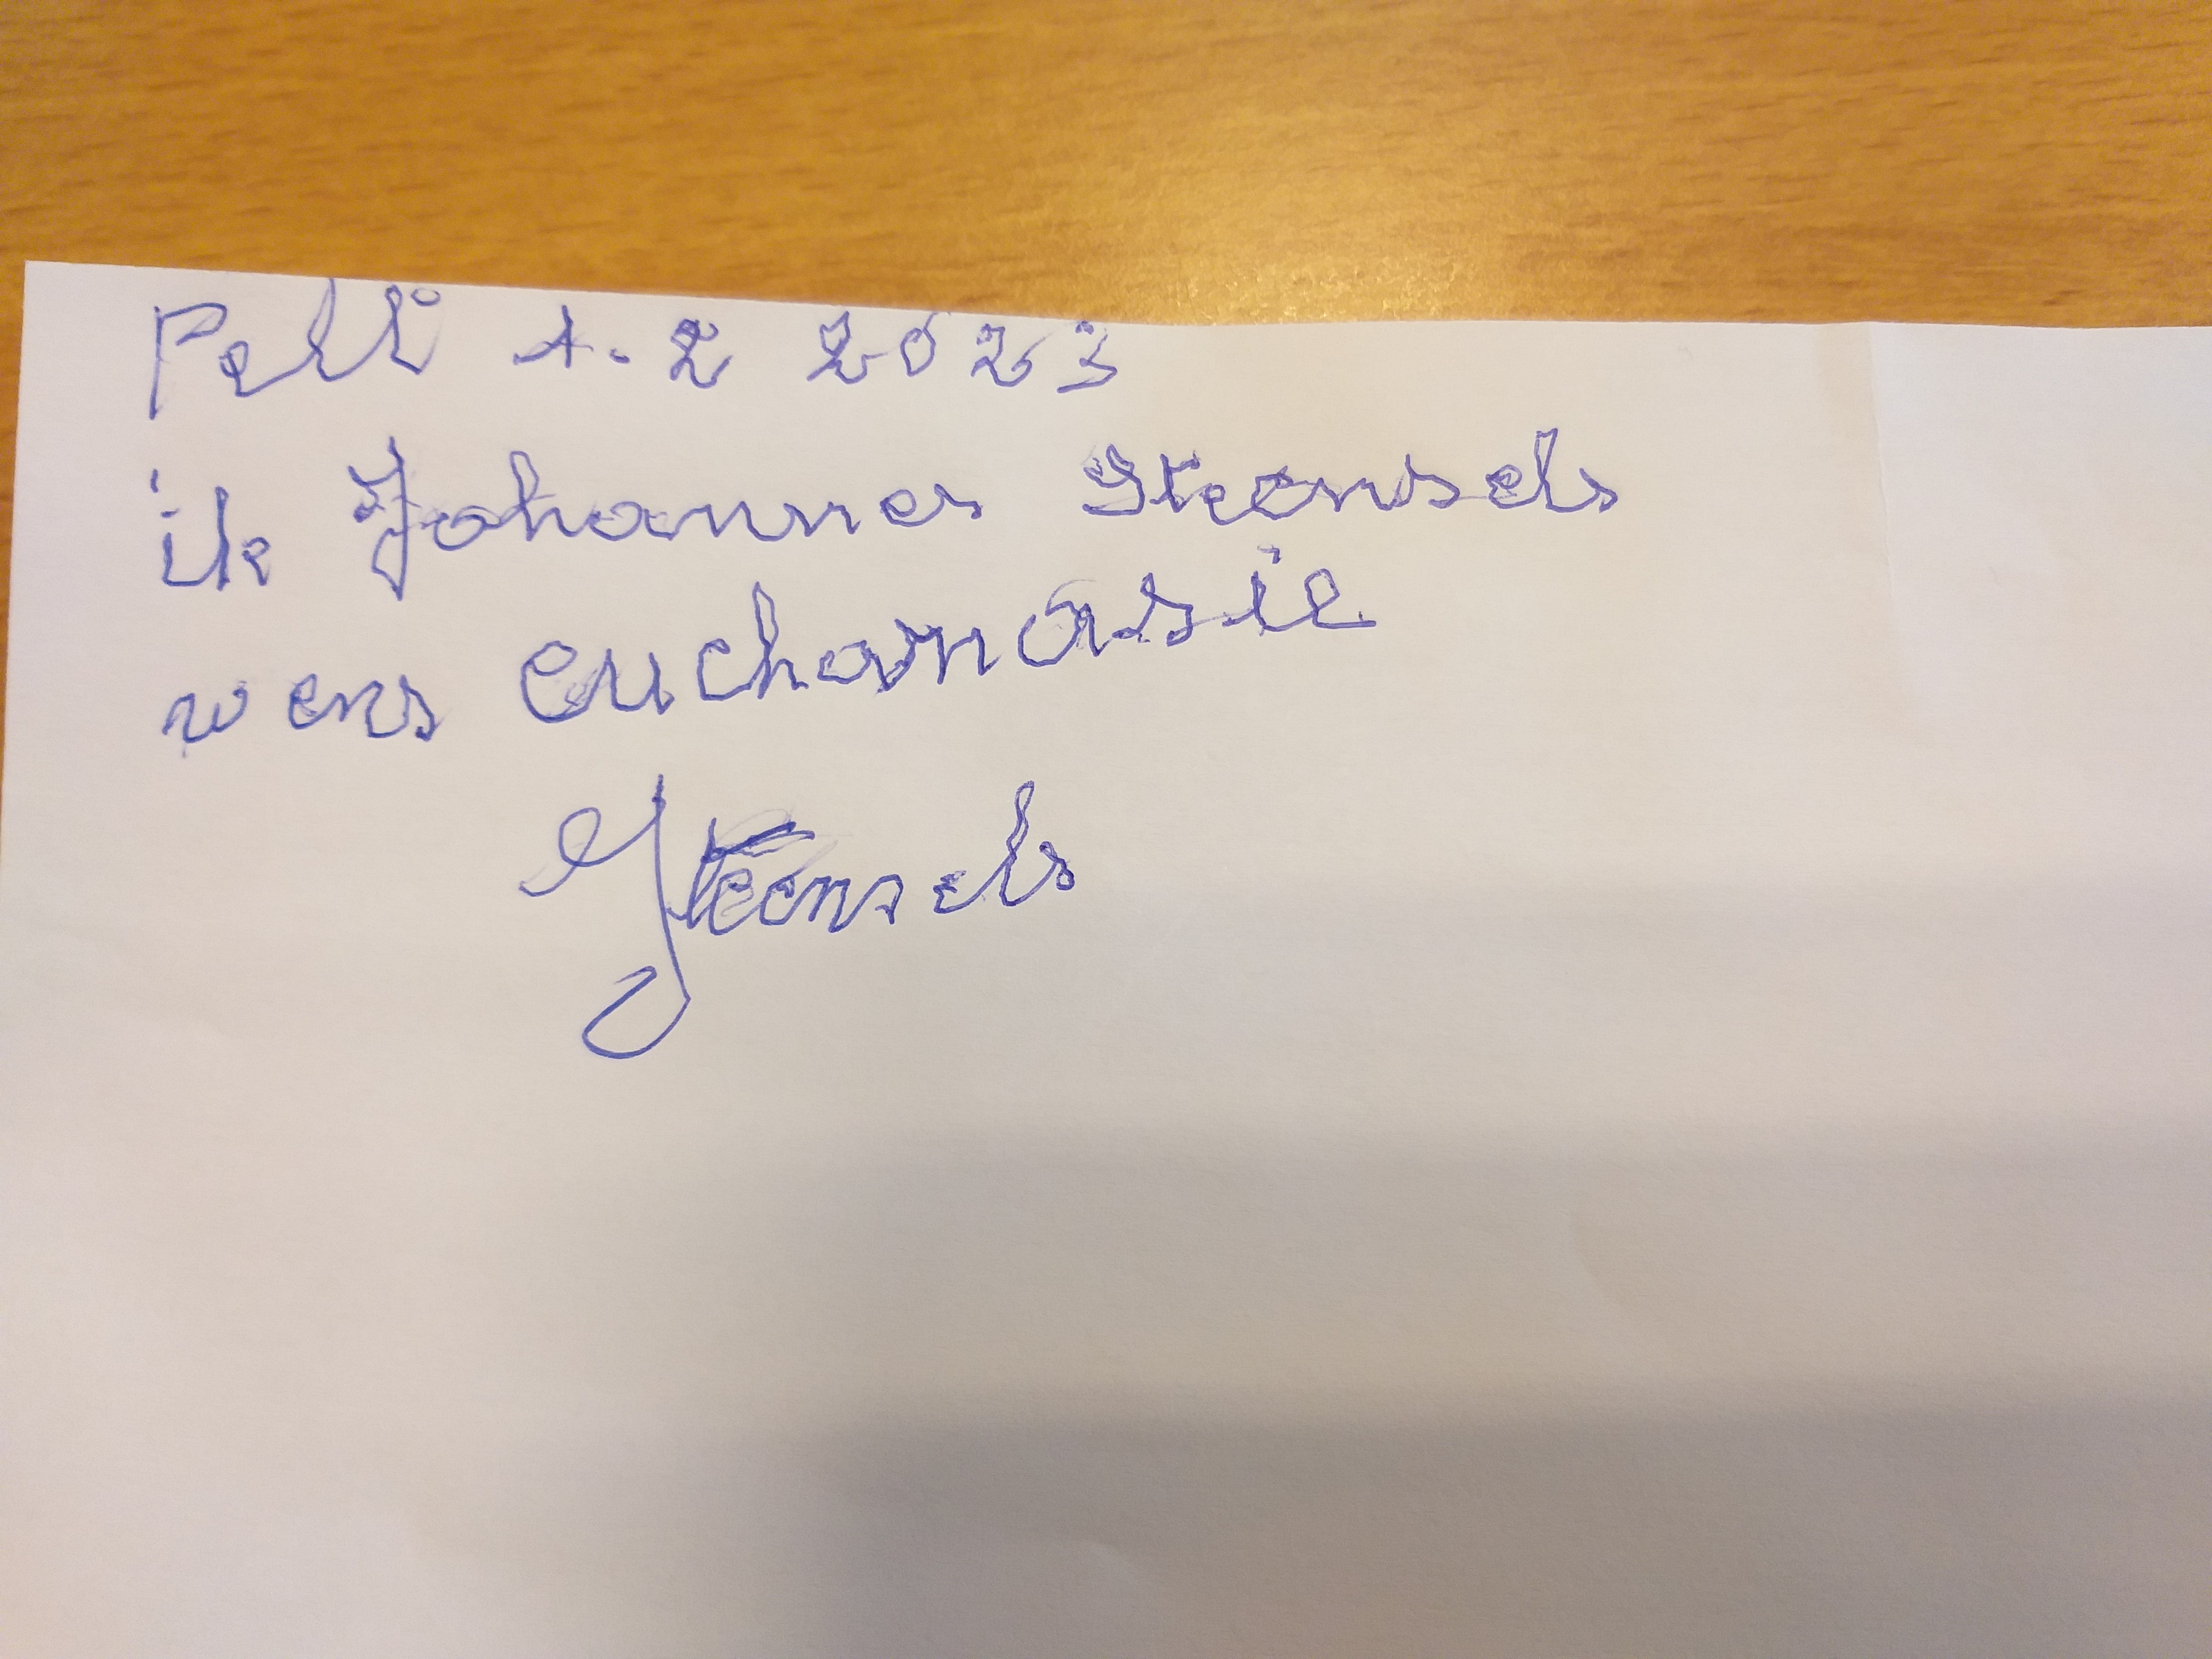 Pelt 1.2 2023
ik Johannes Steensels
wens euchanasie
Steensels